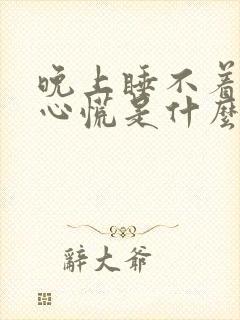 晚上睡不着
心慌是什麼
辭大爷